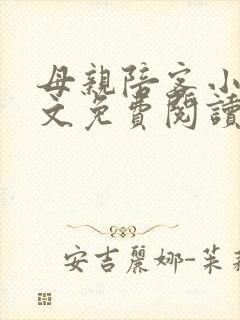 母親陪客小
文免費閱讀
安吉麗娜-茱